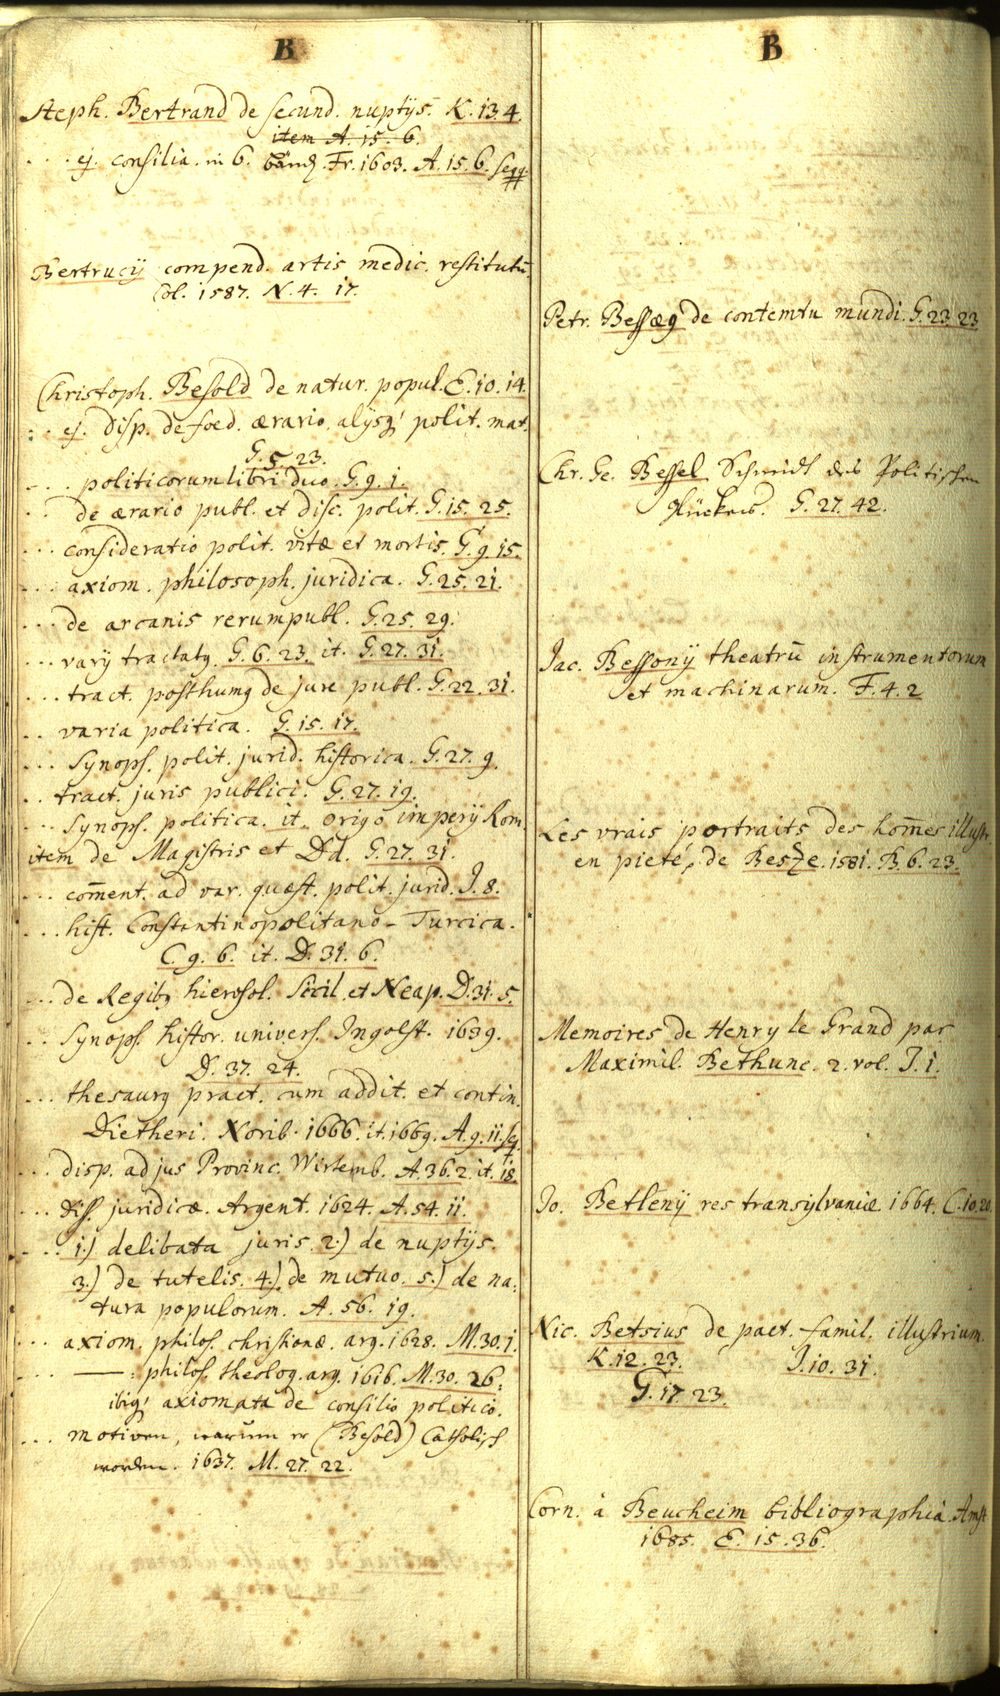 B
Steph. Bertrand de secund. nuptijs. K. 13. 4.
item A. 15. 6.
. . . ej. consilia. in 6. bänd. Fr. 1603. A. 15. 6. seqq.
Bertrucij compend. artis medic. restitutū.
Col. 1587. N. 4. 17.
Christoph. Besold de natur. popul. E. 10. 14.
. . . ej. disp. de foed. ærario, alijsq; polit. mat.
G. 5. 23.
. . . politicorum libri duo. G. 9. 1.
. . . de ærario publ. et disc. polit. G. 15. 25.
. . . consideratio polit. vitæ et mortis. G. 9. 15.
. . . axiom. philosoph. juridica. G. 25. 21.
. . . de arcanis rerumpubl. G. 25. 29.
. . . varij tractatg. G. 6. 23. it. G. 27. 31.
. . . tract. posthumg de jure publ. G. 22. 31.
. . varia politica. G. 15. 17.
. . . Synops. polit. jurid. historica. G. 27. 9.
. . tract. juris publici. G. 27. 19.
. . . Synops. politica. it. origo imperij Rom.
item de Magistris et Dd. G. 27. 31.
. . . com̄ent. ad var. quæst. polit. jurid. J. 8.
. . . hist. Constantinopolitano-Turcica.
C. 9. 6. it. D. 31. 6.
. . . de Regibg hierosol. Sicil. et Neap. D. 31. 5.
. . Synops. histor. univers. Ingolst. 1639.
D. 37. 24.
. . . thesaurg pract. cum addit. et contin.
Dietheri. Norib. 1666. it. 1669. A. 9. 11. sq.
. . . disp. ad jus Provinc. Wirtemb. A. 36. 2. it. 18.
. . . diss. juridicæ. Argent. 1624. A. 54. 11.
. . . 1.) delibata juris. 2.) de nuptijs.
3.) de tutelis. 4.) de mutuo. 5.) de na:
tura populorum. A. 56. 19.
. . . axiom. philos. christianæ. arg. 1628. M. 30. 1.
. . . —— : philos. theolog. arg. 1616. M. 30. 26.
ibiq; axiomata de consilio politico.
. . . motiven, warum er (Besold) Catholisch
worden. 1637. M. 27. 22.
B
Petr. Bessæg de contemtu mundi. G. 23. 23.
Chr. Ge. Bessel Schmidt des Politischen
Glückes. G. 27. 42.
Jac. Bessonij theatrū instrumentorum
et machinarum. F. 4. 2
Les vrais portraits des hom̄es illustr.
en pieté, de Besze. 1581. B. 6. 23.
Memoires de Henry le Grand par
Maximil. Bethune. 2. vol. J. 1.
Jo. Betlenij res transylvaniæ. 1664. C. 10. 20.
Nic. Betsius de pact. famil. illustrium.
K. 12. 23. J. 10. 31.
G. 17. 23.
Corn. à Beucheim bibliographia. Amst.
1685. E. 15. 36.